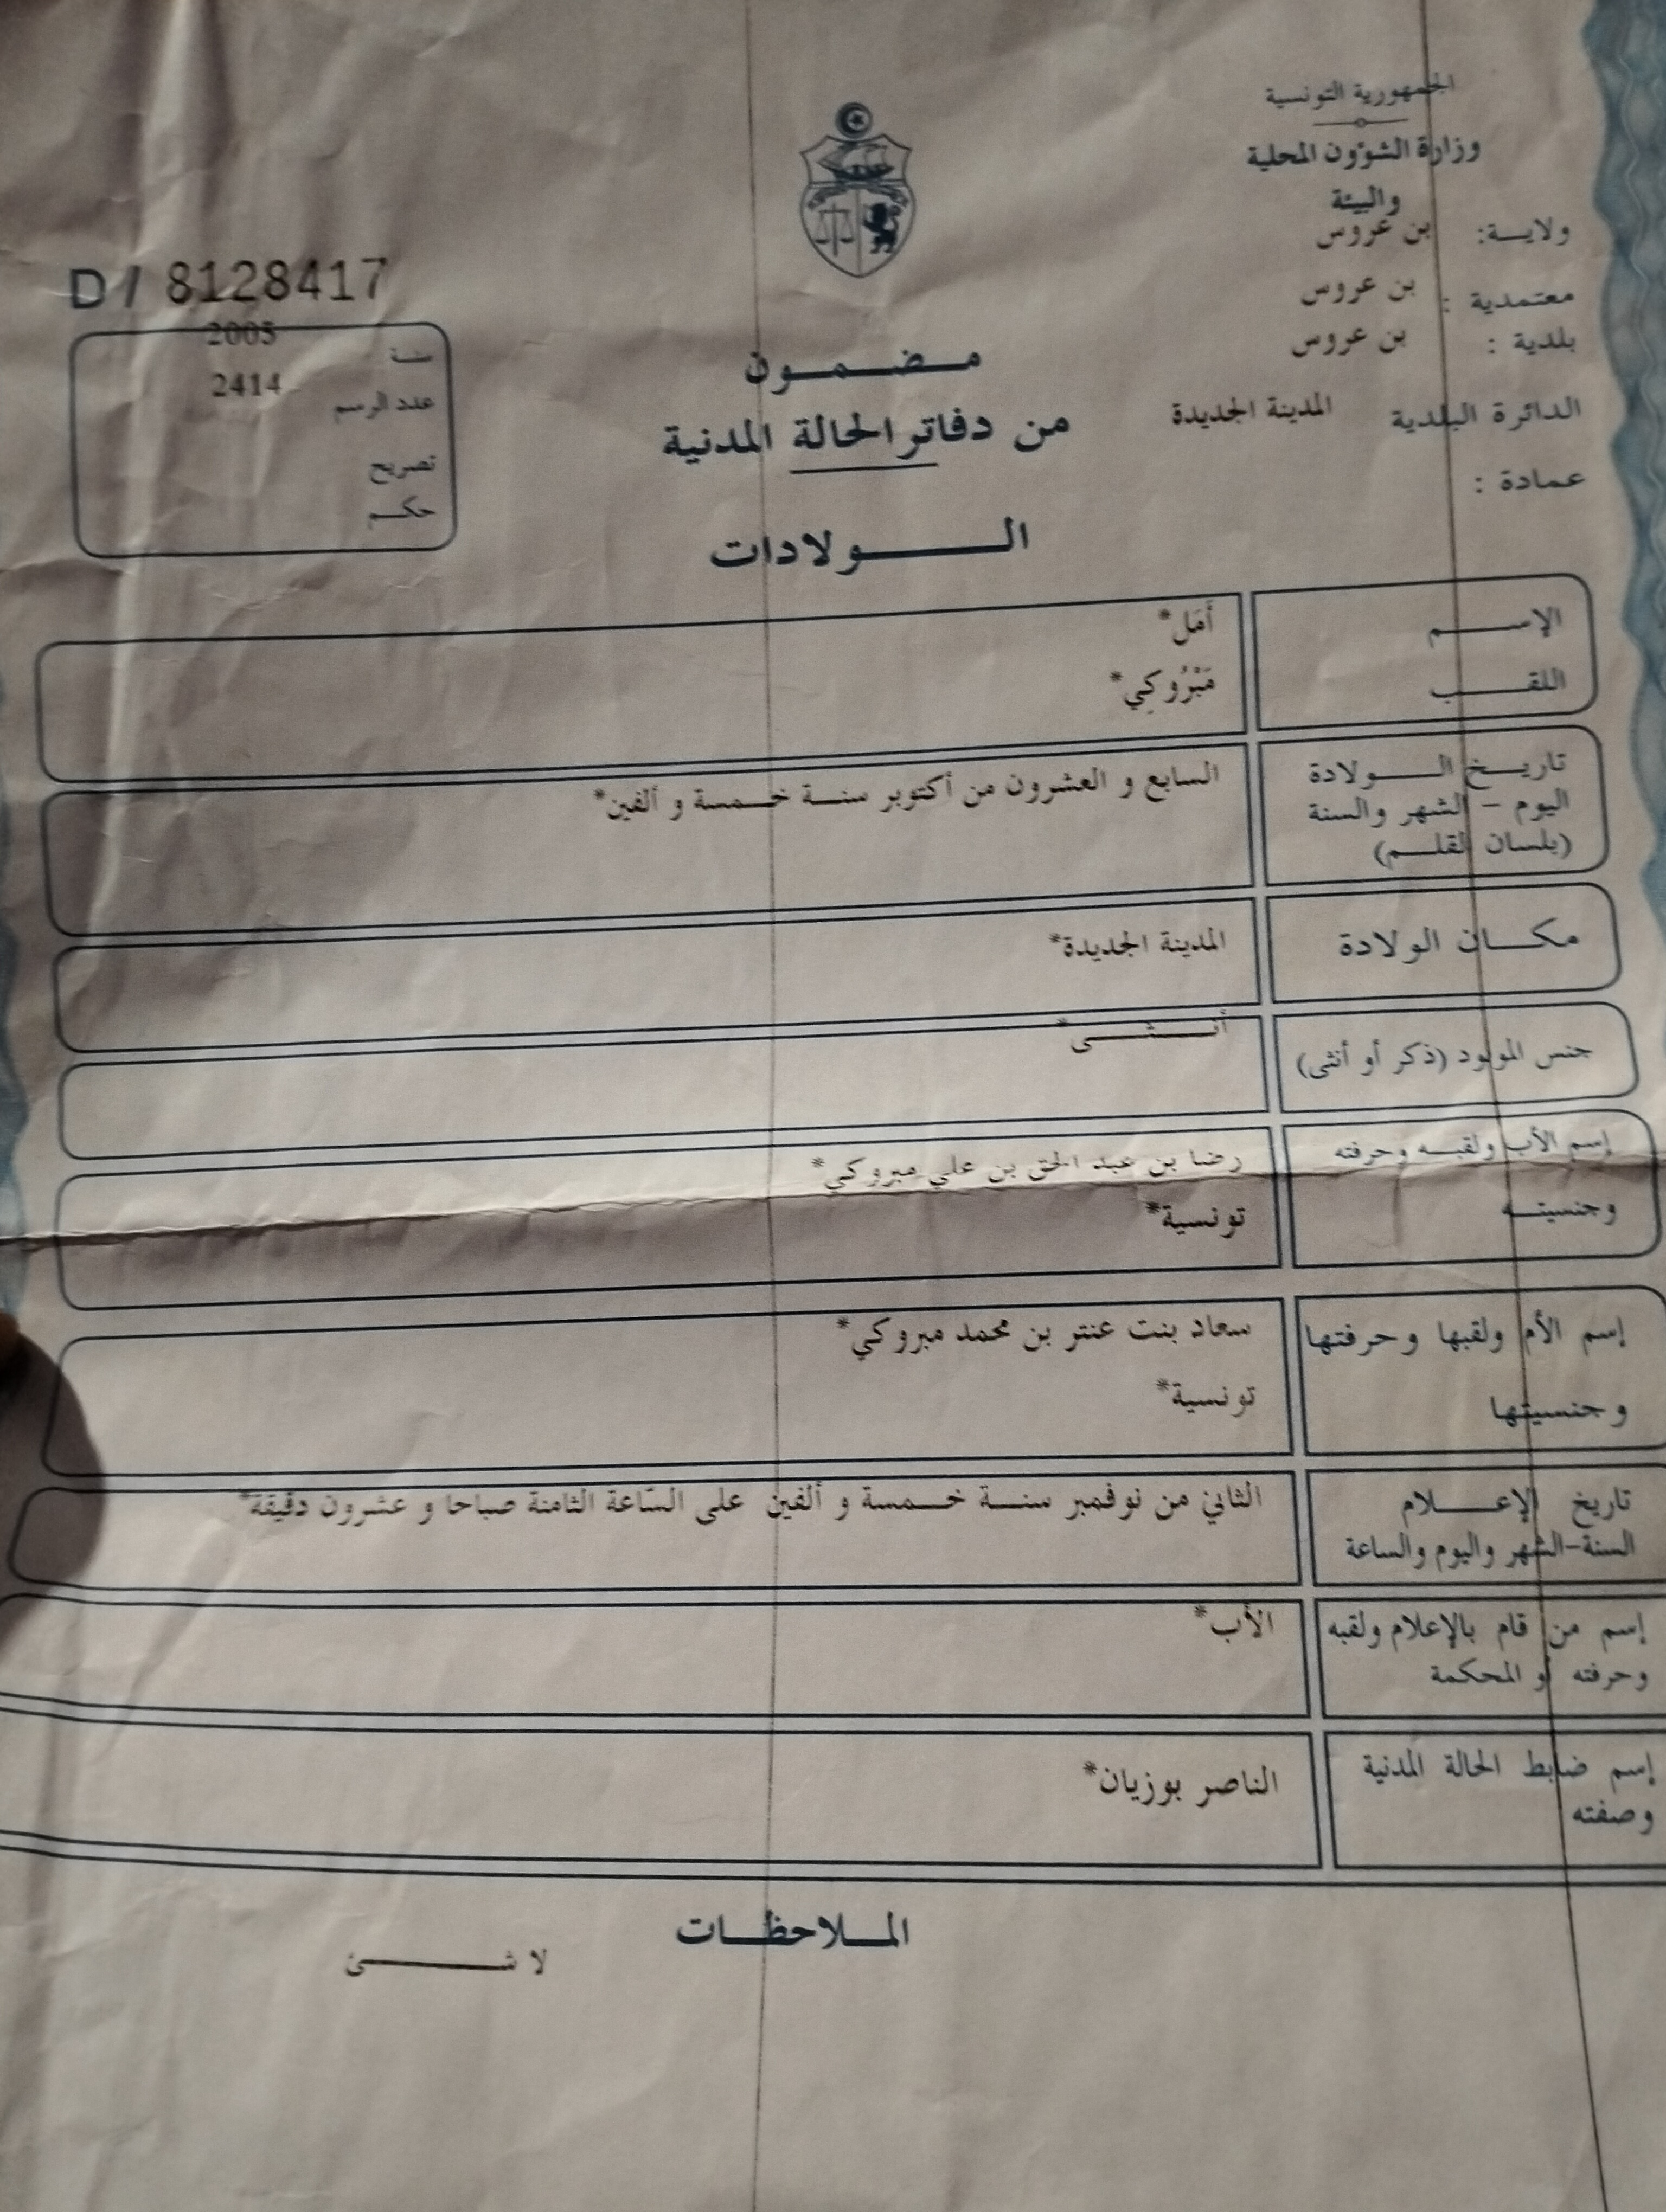 الجمهورية التونسية
وزارة الشؤون المحلية
والبيئة
ولايـــة: بن عروس
معتمدية : بن عروس
بلدية : بن عروس
الدائرة البلدية المدينة الجديدة
عمادة :
D / 8128417
سنة 2005
عدد الرسم 2414
تصريح
حكم
مـضـمـون
من دفاتر الحالة المدنية
الــولادات
الإسـم أَمَل*
اللقـب مَبْرُوكِي*
تاريـخ الــولادة السابع و العشرون من أكتوبر سنـة خـمسة و ألفين*
اليوم - الشهر والسنة
(بلسان القلـم)
مكـان الولادة المدينة الجديدة*
جنس المولود (ذكر أو أنثى) أنـثـى*
إسم الأب ولقبـه وحرفته رضا بن عبد الحق بن علي مبروكي*
وجنسيتـه تونسية*
إسم الأم ولقبها وحرفتها سعاد بنت عنتر بن محمد مبروكي*
وجنسيتها تونسية*
تاريخ الإعـلام الثاني من نوفمبر سنـة خـمسة و ألفين على السّاعة الثامنة صباحا و عشرون دقيقة*
السنة-الشهر واليوم والساعة
إسم من قام بالإعلام ولقبه الأب*
وحرفته أو المحكمة
إسم ضابط الحالة المدنية الناصر بوزيان*
وصفته
المـلاحظـات
لا شـئ